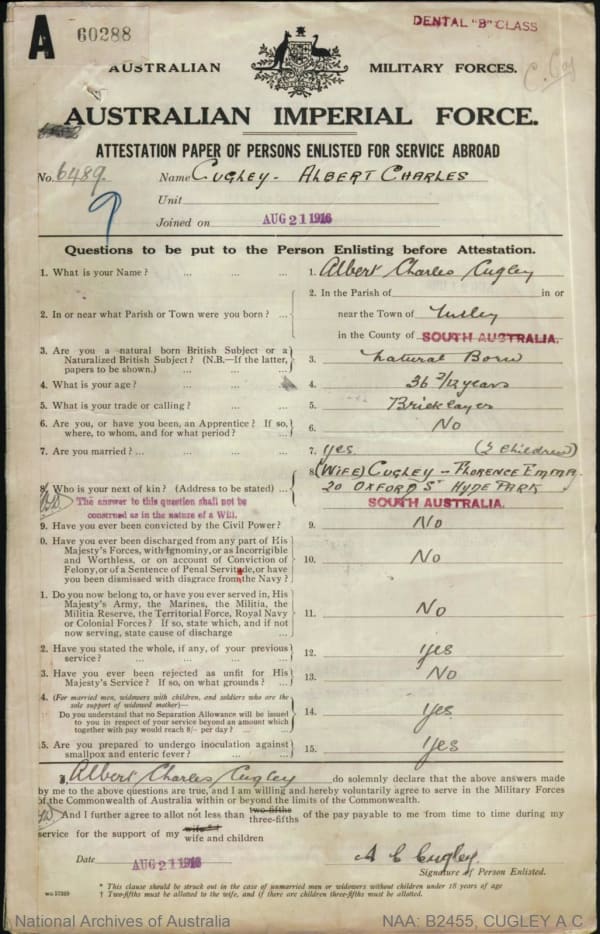 A 60288
DENTAL "B" CLASS
AUSTRALIAN MILITARY FORCES.
AUSTRALIAN IMPERIAL FORCE.
ATTESTATION PAPER OF PERSONS ENLISTED FOR SERVICE ABROAD
No. 6489. Name CUGLEY - ALBERT CHARLES
Unit
Joined on AUG 21 1916
Questions to be put to the Person Enlisting before Attestation.
1. What is your Name? ... ... ... 1. Albert Charles Cugley
2. In the Parish of in or
2. In or near what Parish or Town were you born? ... near the Town of
in the County of SOUTH AUSTRALIA.
3. Are you a natural born British Subject or a
Naturalized British Subject? (N.B.—If the latter, 3. Natural Born
papers to be shown.) ... ...
4. What is your age? ... ... 4. 36 2/12 years
5. What is your trade or calling? ... ... 5. Bricklayer
6. Are you, or have you been, an Apprentice? If so, 6. No
where, to whom, and for what period? ...
7. Are you married? ... ... ... ... 7. yes (2 children)
8. (WIFE) CUGLEY - FLORENCE EMMA
8. Who is your next of kin? (Address to be stated) ... 20 OXFORD ST HYDE PARK
The answer to this question shall not be SOUTH AUSTRALIA.
construed as in the nature of a Will.
9. Have you ever been convicted by the Civil Power? 9. No
0. Have you ever been discharged from any part of His
Majesty's Forces, with Ignominy, or as Incorrigible
and Worthless, or on account of Conviction of 10. No
Felony, or of a Sentence of Penal Servitude, or have
you been dismissed with disgrace from the Navy?
1. Do you now belong to, or have you ever served in, His
Majesty's Army, the Marines, the Militia, the
Militia Reserve, the Territorial Force, Royal Navy 11. No
or Colonial Forces? If so, state which, and if not
now serving, state cause of discharge ...
2. Have you stated the whole, if any, of your previous 12. yes
service? ... ... ... ...
3. Have you ever been rejected as unfit for His 13. No
Majesty's Service? If so, on what grounds? ...
4. (For married men, widowers with children, and soldiers who are the
sole support of widowed mother)—
Do you understand that no Separation Allowance will be issued 14. yes
to you in respect of your service beyond an amount which
together with pay would reach 8/- per day? ... ...
5. Are you prepared to undergo inoculation against 15. yes
smallpox and enteric fever? ... ...
I, Albert Charles Cugley do solemnly declare that the above answers made
by me to the above questions are true, and I am willing and hereby voluntarily agree to serve in the Military Forces
of the Commonwealth of Australia within or beyond the limits of the Commonwealth.
And I further agree to allot not less than two-fifths three-fifths of the pay payable to me from time to time during my
service for the support of my wife wife and children
Date AUG 21 1916 A C Cugley.
Signature of Person Enlisted.
* This clause should be struck out in the case of unmarried men or widowers without children under 18 years of age
† Two-fifths must be allotted to the wife, and if there are children three-fifths must be allotted.
National Archives of Australia NAA: B2455, CUGLEY A C